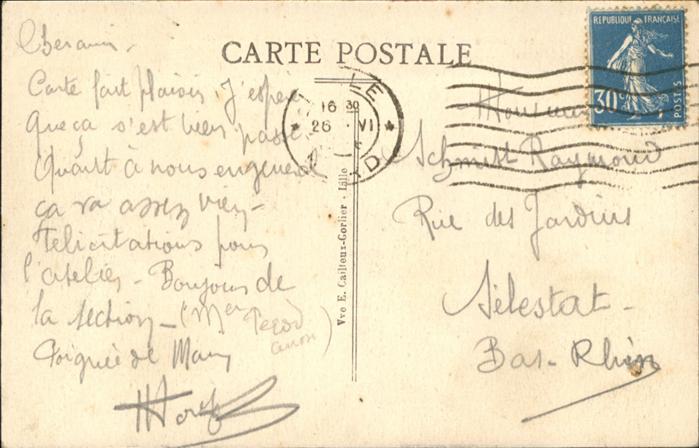 CARTE POSTALE
REPUBLIQUE FRANÇAISE
30c
POSTES
16 30
26 VI
Cher ami -
Carte fait plaisir J'espère
que ça s'est bien passé
Quant à nous en general
ça va assez bien -
Felicitations pour
l'atelier - Bonjour de
la section -
Poignée de Main
Vve E. Cailteux-Gorlier - Lille
Monsieur
Schmitt Raymond
Rue des Jardins
Sélestat -
Bas-Rhin